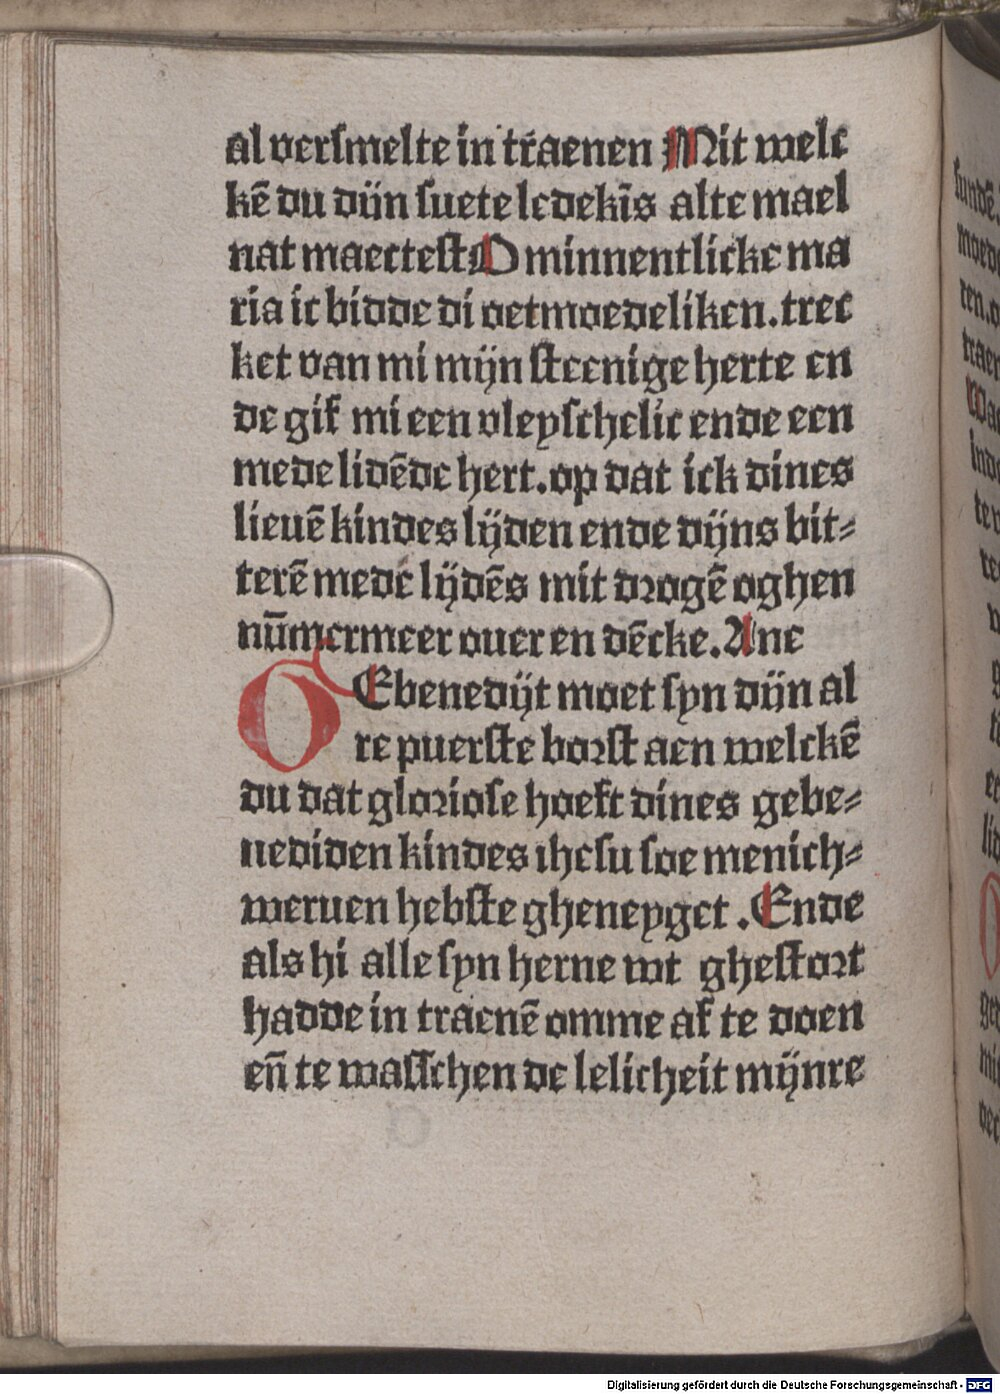 al verſmelte in traenen Mit welc
kē du dijn ſuete ledekīs alte mael
nat maectest O minnentlicke ma
ria ic bidde di oetmoedeliken. trec
ket van mi mijn steenige herte en
de gif mi een vleyſchelic ende een
mede lidēde hert. op dat ick dines
lieuē kindes lijden ende dijns bit⸗
terē mede lijdēs mit drogē oghen
nūmermeer ouer en dēcke. Ame
O Ebenedijt moet ſyn dijn al
re puerste borst aen welckē
du dat glorioſe hoeft dines gebe⸗
nediden kindes ihesu ſoe menich⸗
weruen hebste gheneyget . Ende
als hi alle ſyn herne wt ghestort
hadde in traenē omme af te doen
eñ te waſſchen de lelicheit mijnre
Digitalisierung gefördert durch die Deutsche Forschungsgemeinschaft - DFG